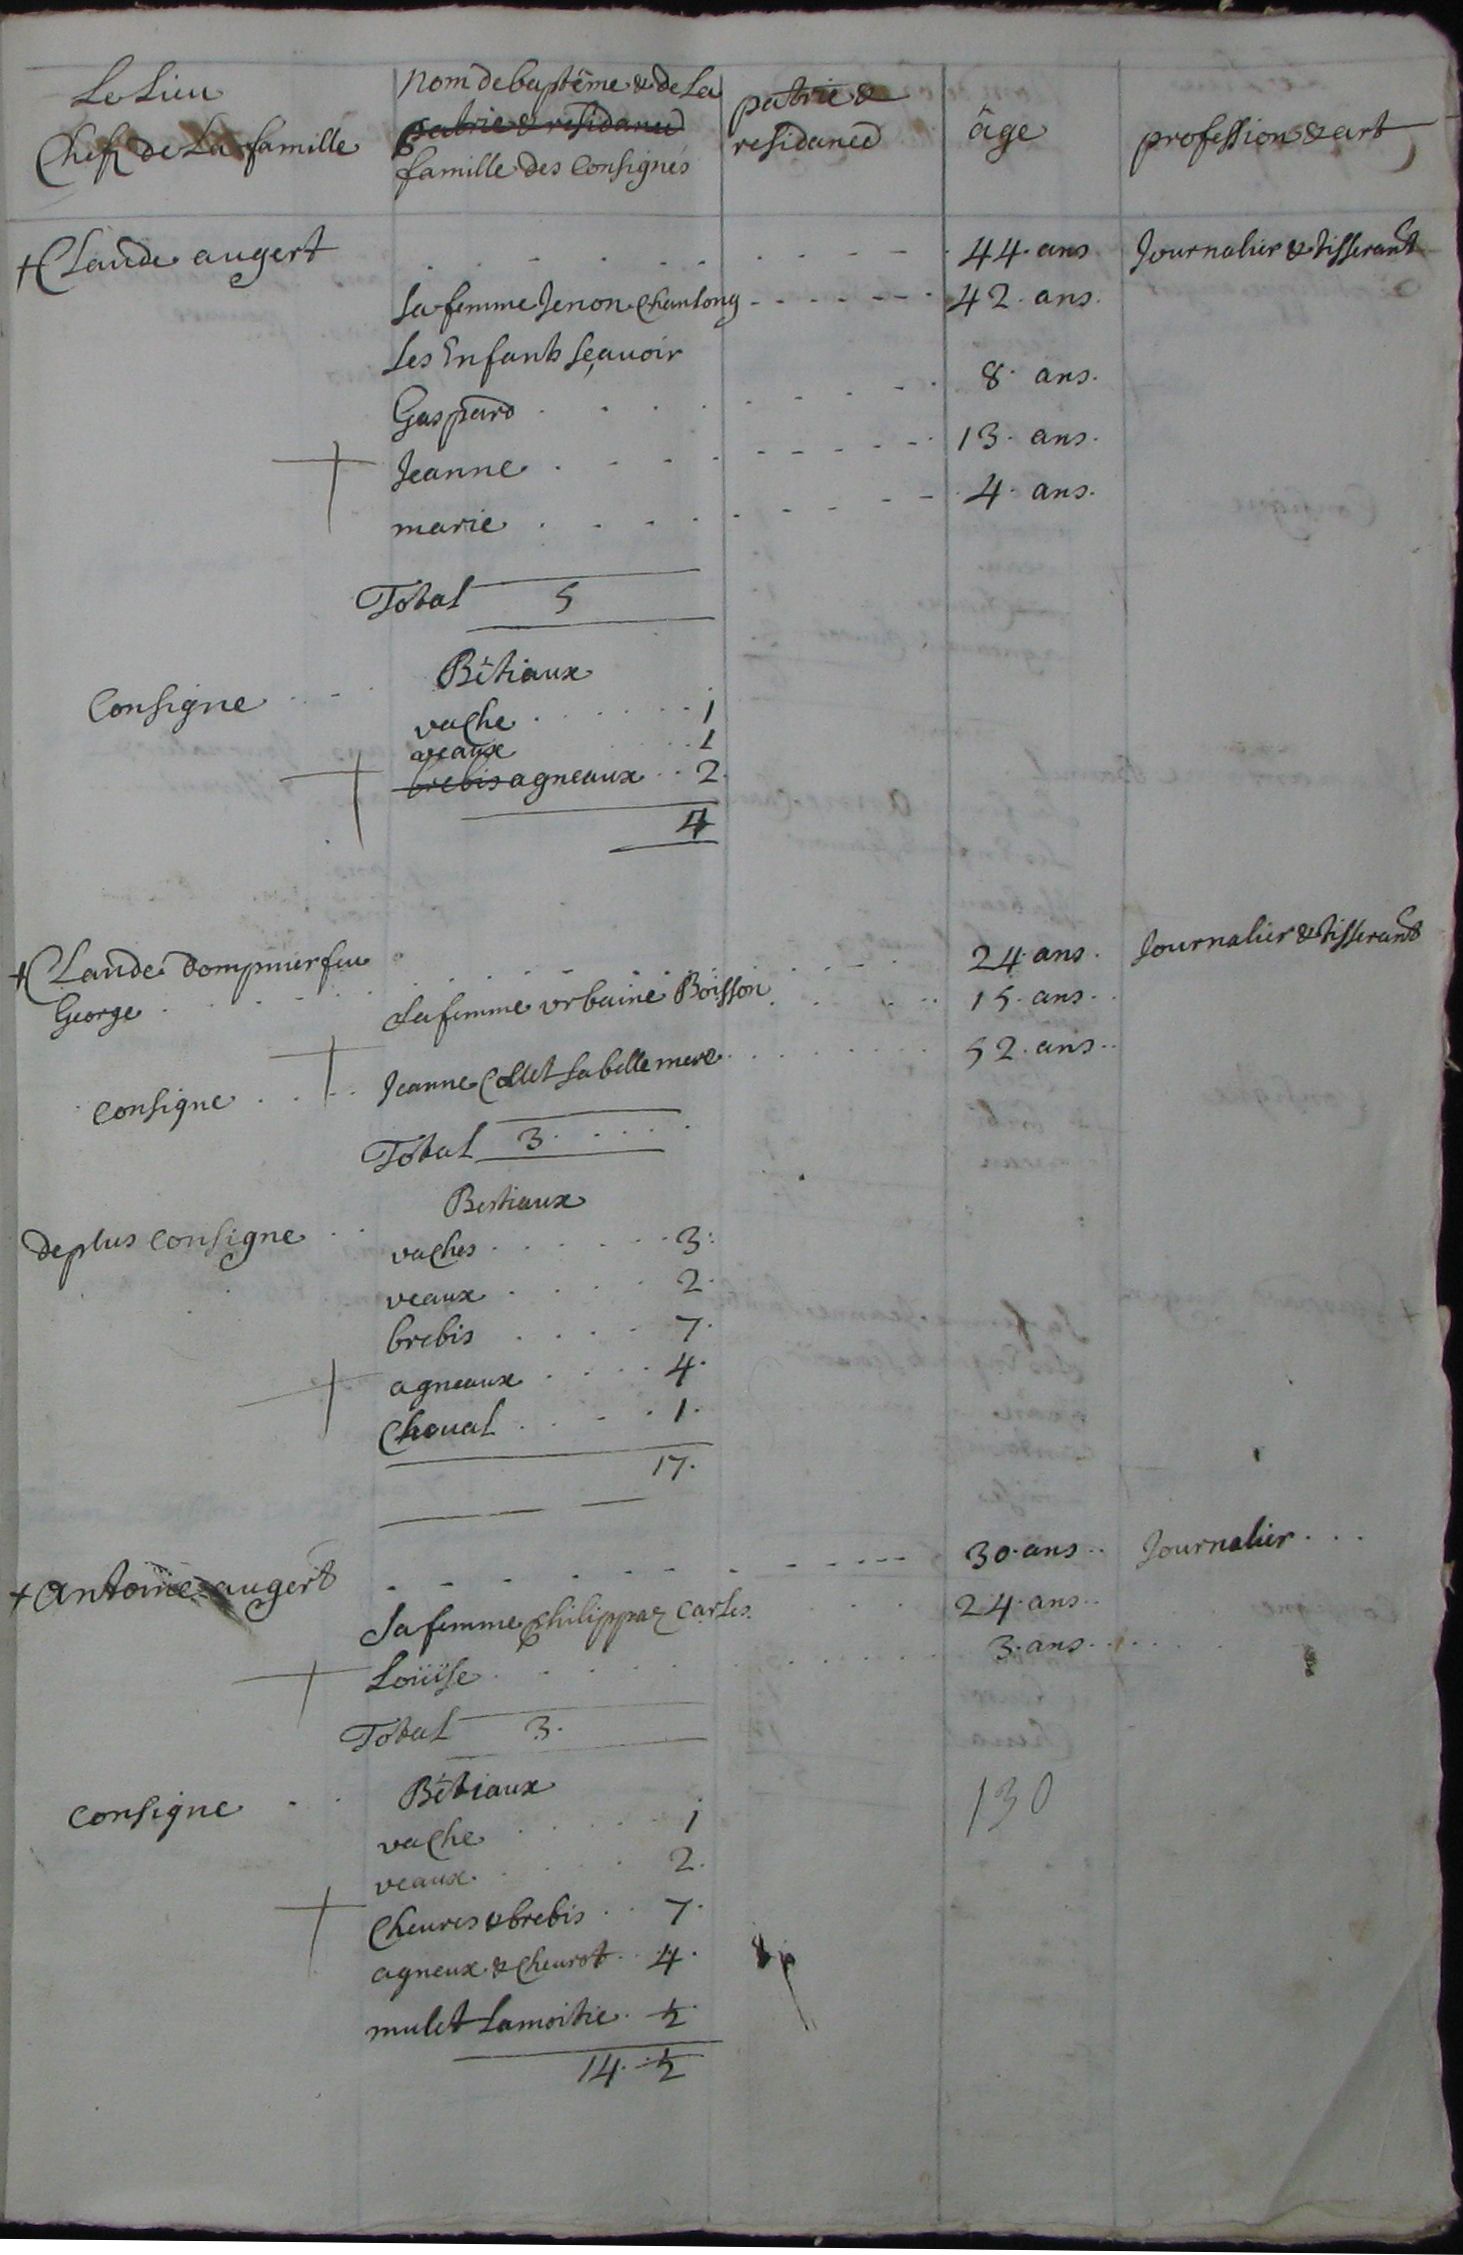 Le Lieu
Chefz de La famille
nom de baptême & de La
patrie & residance
famille des Consignés
patrie &
residance
âge
profession & art
+ Claude augert 44. ans Journalier & tisserant
sa femme Jenon Chanlong 42. ans.
Les Enfants sçavoir
Gaspard 8. ans.
Jeanne 13. ans.
marie 4. ans.
Total 5
Consigne Bêtiaux
vache 1
veaux 1
brebis agneaux 2.
4
+ Claude dompmier feu 24. ans. Journalier & tisserant
George
sa femme Urbaine Boisson 15. ans.
Consigne Jeanne Collet sa belle mere 52. ans.
Total 3.
Bestiaux
de plus Consigne vaches 3.
veaux 2.
brebis 7.
agneaux 4.
Cheual 1.
17.
+ antoine augert 30. ans Journalier
sa femme philippaz Carles 24. ans
Loüise 3. ans
Total 3.
Consigne Bêtiaux
130
vache 1
veaux 2.
Cheures & brebis 7.
agneux & Cheurot 4.
mulet La moitie 1/2
14. 1/2